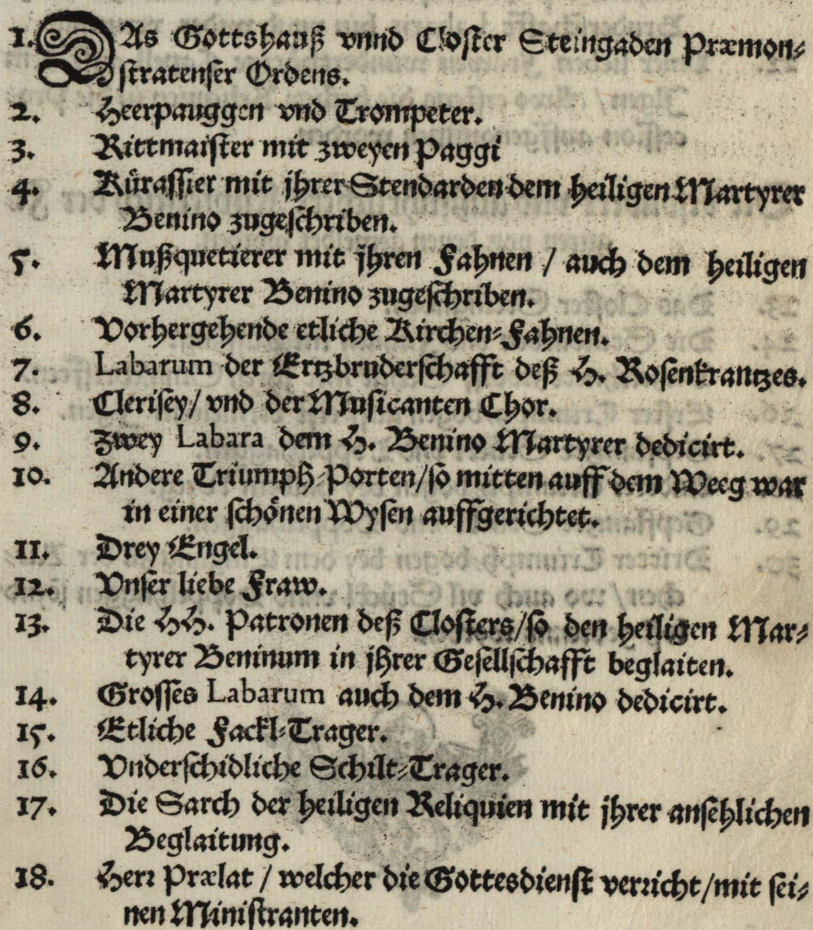 1. DAs Gottshauß vnnd Closter Steingaden Præmon-
stratenser Ordens.
2. Heerpauggen vnd Trompeter.
3. Rittmaister mit zweyen Paggi
4. Kürassier mit jhrer Stendarden dem heiligen Martyrer
Benino zugeschriben.
5. Mußquetierer mit jhren Fahnen / auch dem heiligen
Martyrer Benino zugeschriben.
6. Vorhergehende etliche Kirchen-Fahnen.
7. Labarum der Ertzbruderschafft deß H. Rosenkrantzes.
8. Clerisey/ vnd der Musicanten Chor.
9. Zwey Labara dem H. Benino Martyrer dedicirt.
10. Andere Triumph-Porten/so mitten auff dem Weeg war
in einer schönen Wysen auffgerichtet.
11. Drey Engel.
12. Vnser liebe Fraw.
13. Die HH. Patronen deß Closters/so den heiligen Mar-
tyrer Beninum in jhrer Gesellschafft beglaiten.
14. Grosses Labarum auch dem H. Benino dedicirt.
15. Etliche Fackl-Trager.
16. Vnderschidliche Schilt-Trager.
17. Die Sarch der heiligen Reliquien mit jhrer ansehlichen
Beglaitung.
18. Herr Prælat / welcher die Gottesdienst verricht/mit sei-
nen Ministranten.